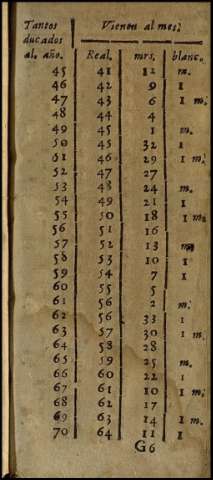 Tantos Vienen al mes.
ducados
al. año. Real. mrs. blanc.
45 41 12 m.
46 42 9 1
47 43 6 1 m.
48 44 4
49 45 1 m.
50 45 32 1
51 46 29 1 m.
52 47 27
53 48 24 m.
54 49 21 1
55 50 18 1 m.
56 51 16
57 52 13 m
58 53 10 1
59 54 7 1
60 55 5
61 56 2 m.
62 56 33 1
63 57 30 1 m.
64 58 28
65 59 25 m.
66 60 22 1
67 61 10 1 m.
68 62 17
69 63 14 m.
70 64 11 1
G6